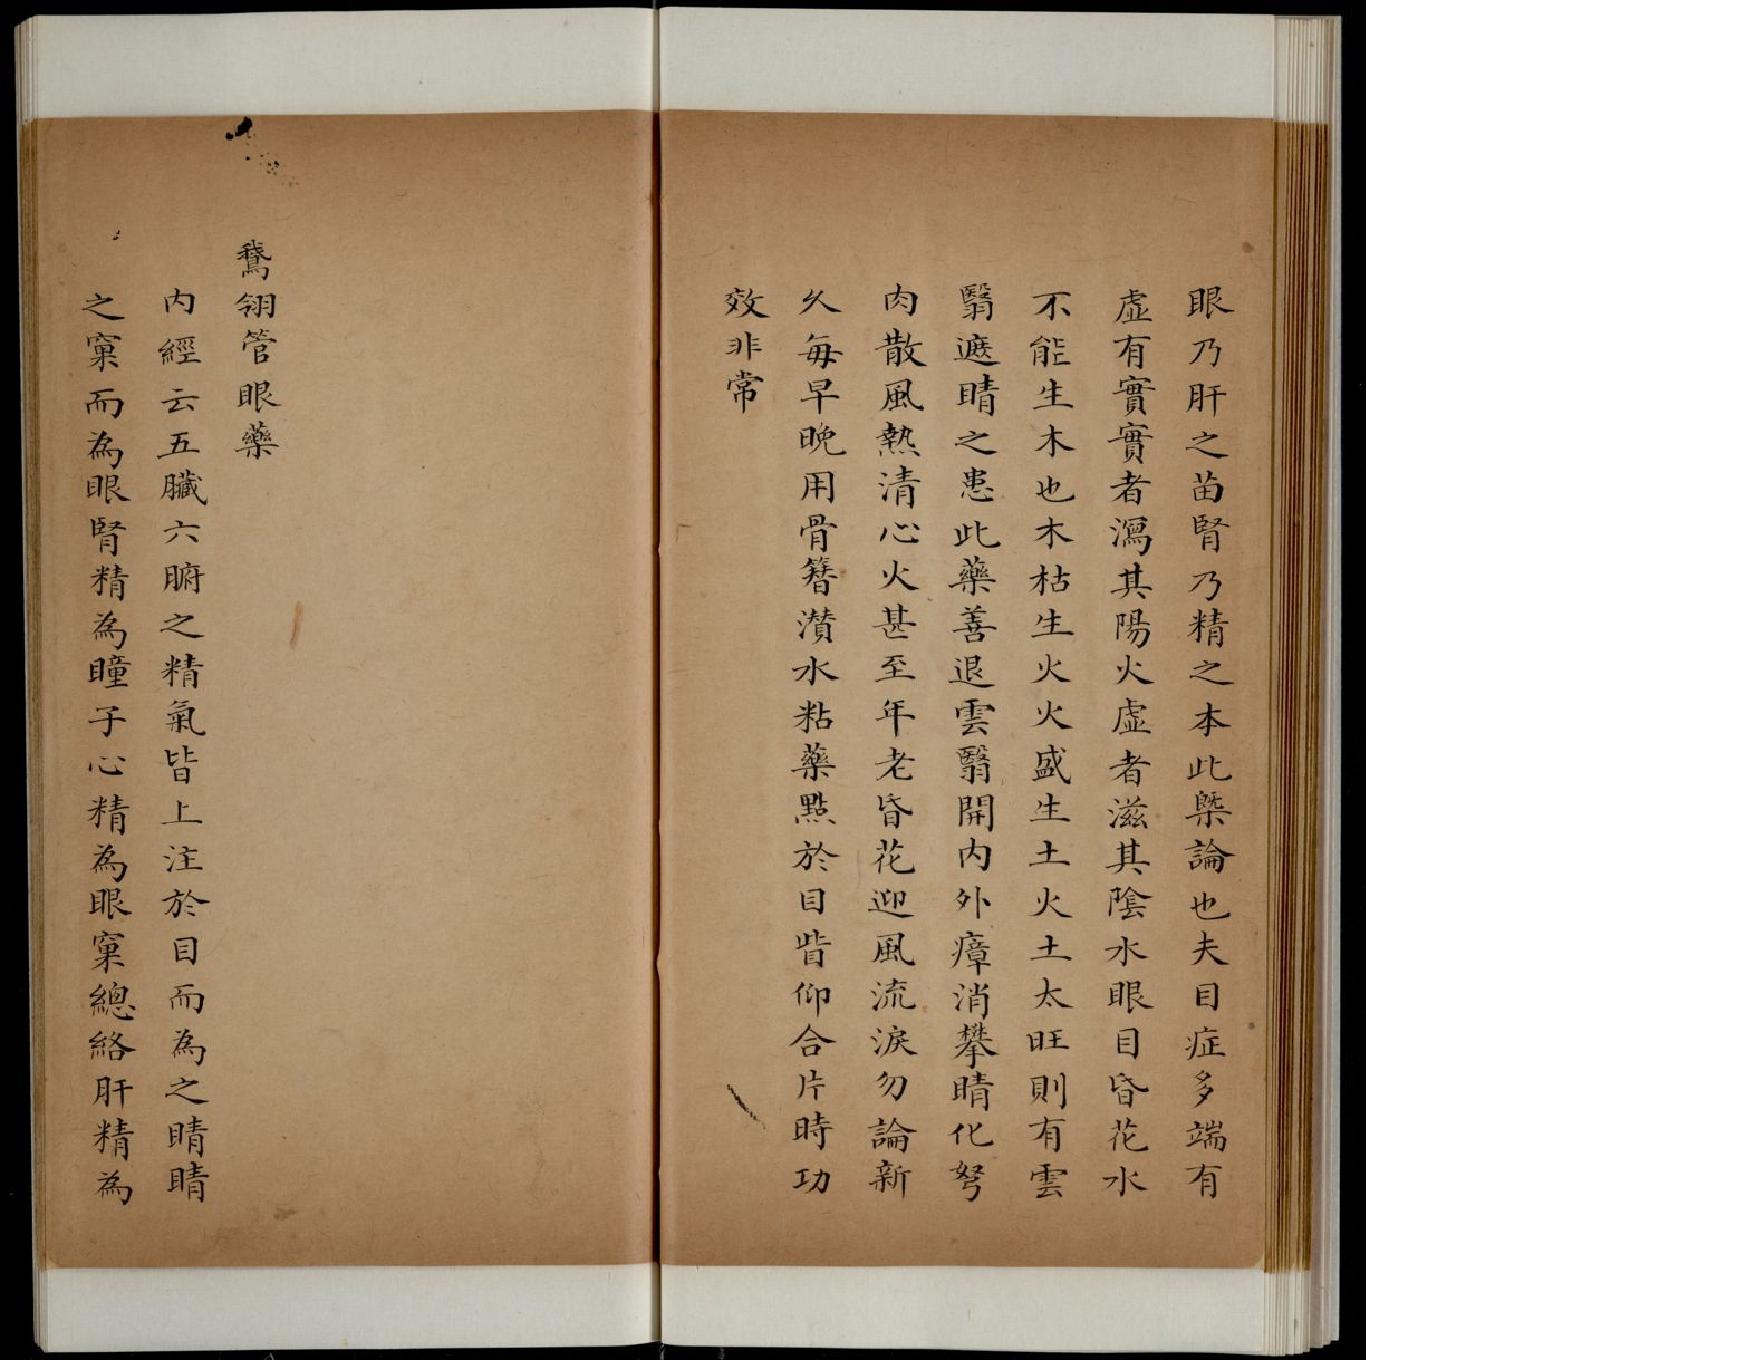 眼乃肝之苗腎乃精之本此槩論也夫目症多端有
虛有實實者瀉其陽火虛者滋其陰水眼目昏花水
不能生木也木枯生火火盛生土火土太旺則有雲
翳遮睛之患此藥善退雲翳開內外瘴消攀睛化胬
肉散風熱清心火甚至年老昏花迎風流淚勿論新
久每早晚用骨簪濽水粘藥點於目眥仰合片時功
效非常
鵞翎管眼藥
內經云五臟六腑之精氣皆上注於目而為之睛睛
之窠而為眼腎精為瞳子心精為眼窠總絡肝精為